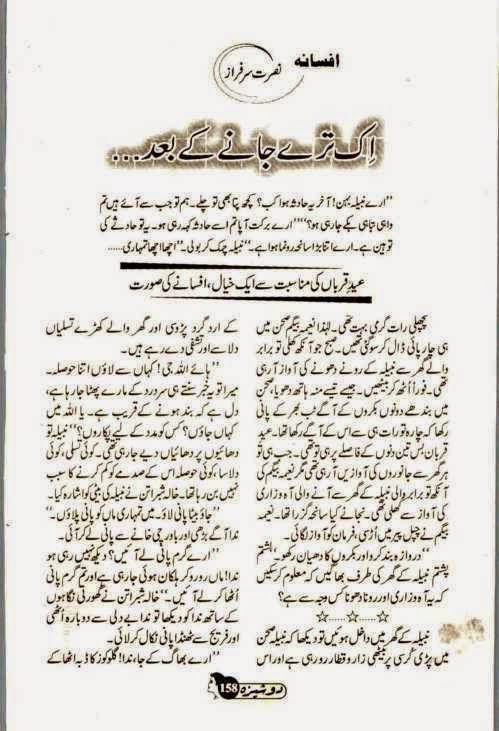 افسانہ
نصرت سرفراز
اِک ترے جانے کے بعد...
"ارے نبیلہ بہن! آخر یہ حادثہ ہوا کب؟ کچھ پتا بھی تو چلے۔ ہم تو جب سے آئے ہیں تم
واہی تباہی بکے جا رہی ہو؟" "ارے برکت آپا تم اسے حادثہ کہہ رہی ہو۔ یہ تو حادثے کی
توہین ہے۔ ارے اتنا بڑا سانحہ رونما ہوا ہے۔" نبیلہ چمک کر بولی۔ "اچھا اچھا تمہاری......
عیدِ قرباں کی مناسبت سے ایک خیال، افسانے کی صورت
پچھلی رات گرمی بہت تھی۔ لہٰذا نعیمہ بیگم صحن میں
ہی چارپائی ڈال کر سو گئی تھیں۔ صبح جو آنکھ کھلی تو برابر
والے گھر سے نبیلہ کے رونے دھونے کی آواز آ رہی
تھی۔ فوراً اُٹھ کر بیٹھیں۔ جیسے تیسے منہ ہاتھ دھویا، صحن
میں بندھے دونوں بکروں کے آگے ٹب بھر کے پانی
رکھا کہ چارہ تو رات ہی سے اس کے آگے رکھا تھا۔ عید
قرباں بس تین دنوں کے فاصلے پر ہی تو تھی۔ جب ہی تو
ہر گھر سے جانوروں کی آوازیں آ رہی تھی مگر نعیمہ بیگم کی
آنکھ تو برابر والی نبیلہ کے گھر سے آنے والی آہ و زاری
کی آواز سے کھلی تھی۔ نجانے کیا سانحہ گزرا تھا۔ نعیمہ
بیگم نے چپل پیر میں اڑسی، فرمان کو آواز لگائی۔
"دروازہ بند کر دو اور بکروں کا دھیان رکھو۔" پشتم
پشتم نبیلہ کے گھر کی طرف بھاگیں کہ معلوم کر سکیں
کہ یہ آہ و زاری اور رونا دھونا کس وجہ سے ہے؟
☆......☆......☆
نبیلہ کے گھر میں داخل ہوئیں تو دیکھا کہ نبیلہ صحن
میں پڑی کرسی پر بیٹھی زار و قطار رو رہی ہے اور اس
کے ارد گرد پڑوسی اور گھر والے کھڑے تسلیاں
دلاسے اور تشفی دے رہے ہیں۔
"ہائے اللہ جی! کہاں سے لاؤں اتنا حوصلہ۔
میرا تو یہ خبر سنتے ہی سر درد کے مارے پھٹا جا رہا ہے،
دل ہے کہ بند ہونے کے قریب ہے۔ یا اللہ میں
کہاں جاؤں؟ کس کو مدد کے لیے پکاروں؟" نبیلہ تو
دھائیوں پر دھائیاں دیے جا رہی تھی۔ کوئی تسلی، کوئی
دلاسا، کوئی حوصلہ اس کے صدمے کو کم کرنے کا سبب
نہیں بن رہا تھا۔ خالہ شبراتن نے نبیلہ کی بیٹی کو اشارہ کیا۔
"جاؤ بیٹا پانی لاؤ۔ میں تمہاری ماں کو پانی پلاؤں۔"
ندا آگے بڑھی اور باورچی خانے سے پانی لے آئی۔
"ارے گرم پانی لے آئیں؟ دیکھ نہیں رہی ہو
ندا! ماں رو رو کر ہلکان ہوئی جا رہی ہے اور تم گرم پانی
اُٹھا کر لے آئیں۔" خالہ شبراتن نے گھورتی نگاہوں
کے ساتھ ندا کو دیکھا تو ندا بے دلی سے دوبارہ اُٹھی
اور فریج سے ٹھنڈا پانی نکال کر لائی۔
"ارے بھاگ کے جا، ندا! گلوکوز کا ڈبہ اٹھا کے
دوشیزہ 158